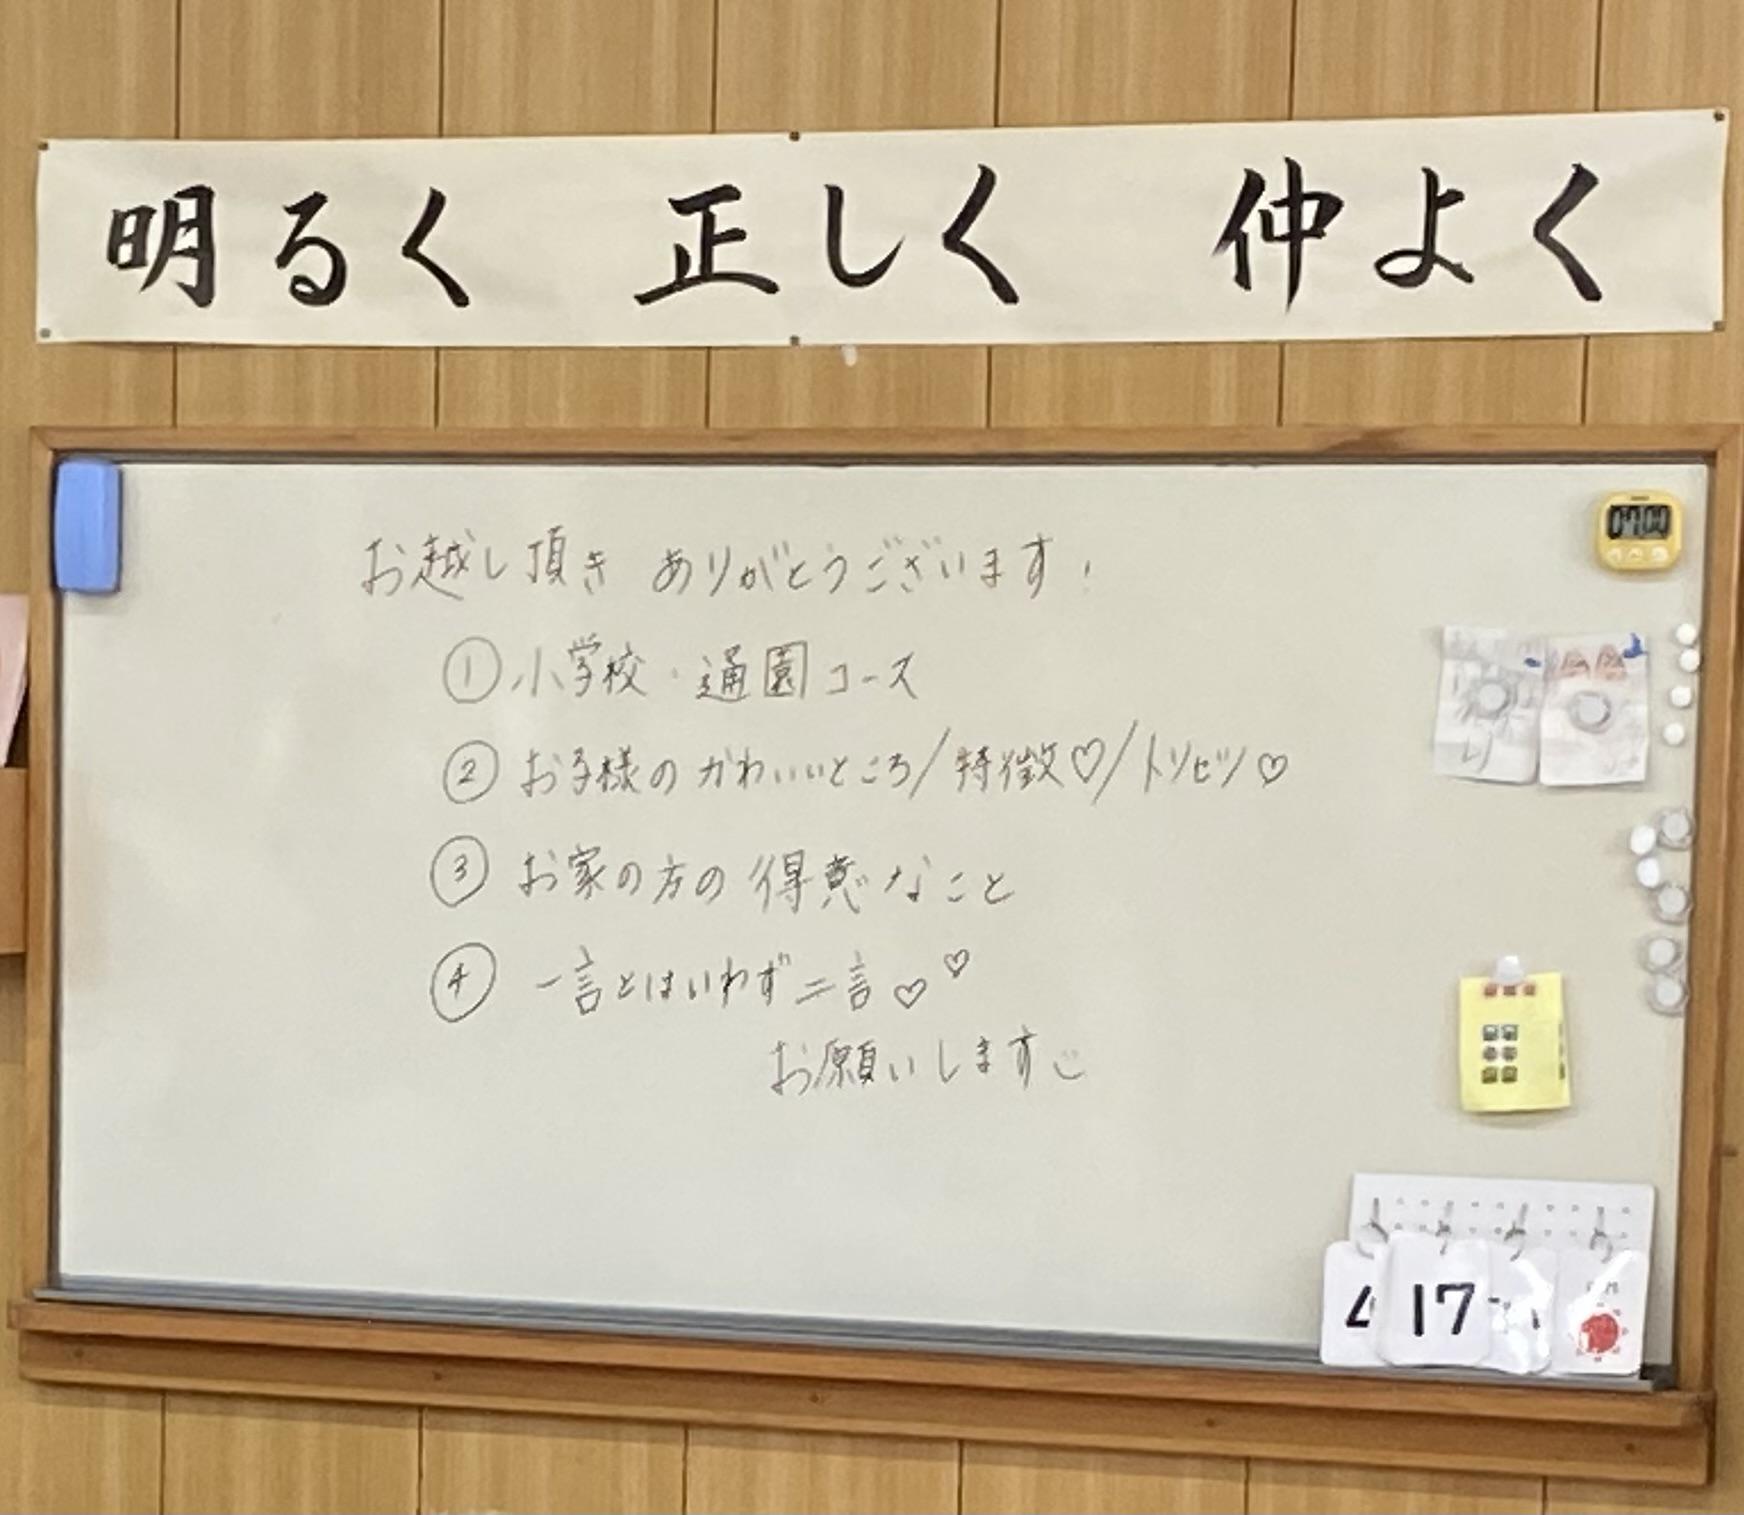 明るく 正しく 仲よく
お越し頂き ありがとうございます!
① 小学校・通園コース
② お子様のかわいいところ/特徴♡/トリビア♡
③ お家の方の得意なこと
④ 一言とはいわず二言♡♡
お願いします
07:00
4 17